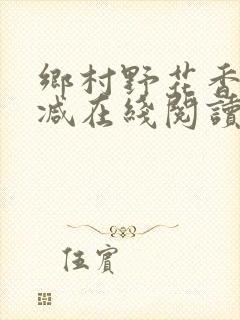 鄉村野花香
減在綫閱讀
伍賓